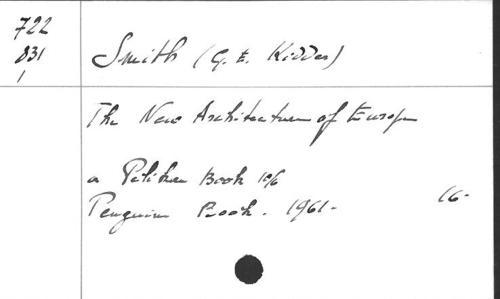 722
031
1
Smith (G. E. Kidder)
The New Architecture of Europe
a Pelikan Book 10/6
Penguin Book. 1961- 16-